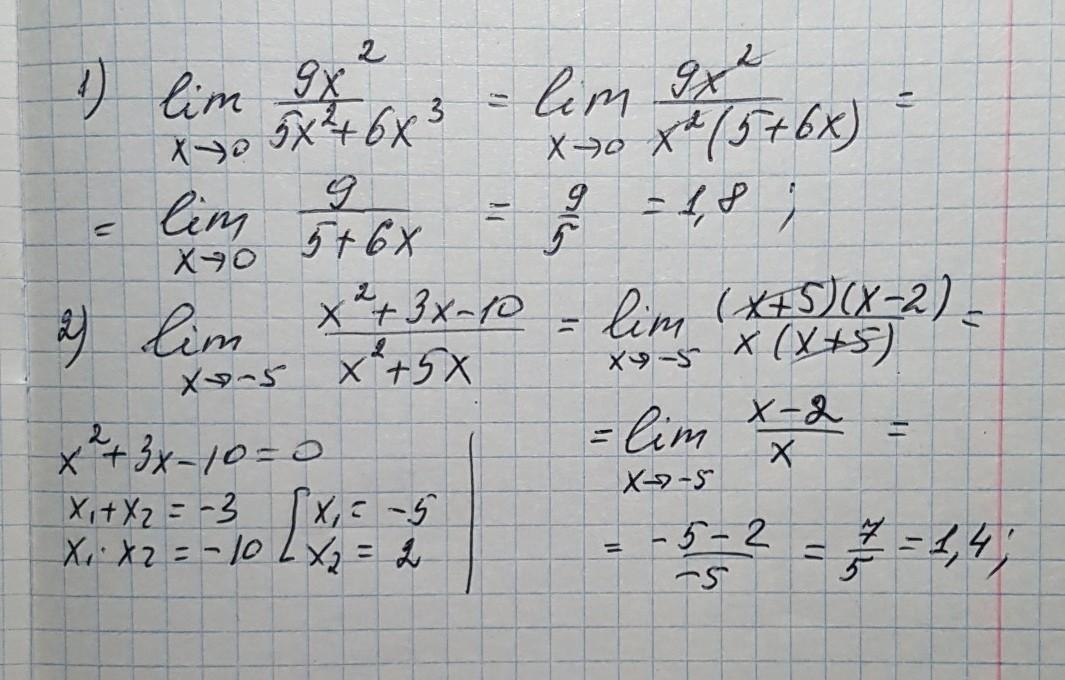 1) lim x→0 9x²/(5x²+6x³) = lim x→0 9x²/(x²(5+6x)) =
= lim x→0 9/(5+6x) = 9/5 = 1,8 ;
2) lim x→-5 (x²+3x-10)/(x²+5x) = lim x→-5 (x+5)(x-2)/(x(x+5)) =
= lim x→-5 (x-2)/x =
= (-5-2)/(-5) = 7/5 = 1,4 ;
x²+3x-10=0
x₁+x₂ = -3 [ x₁ = -5
x₁·x₂ = -10 [ x₂ = 2